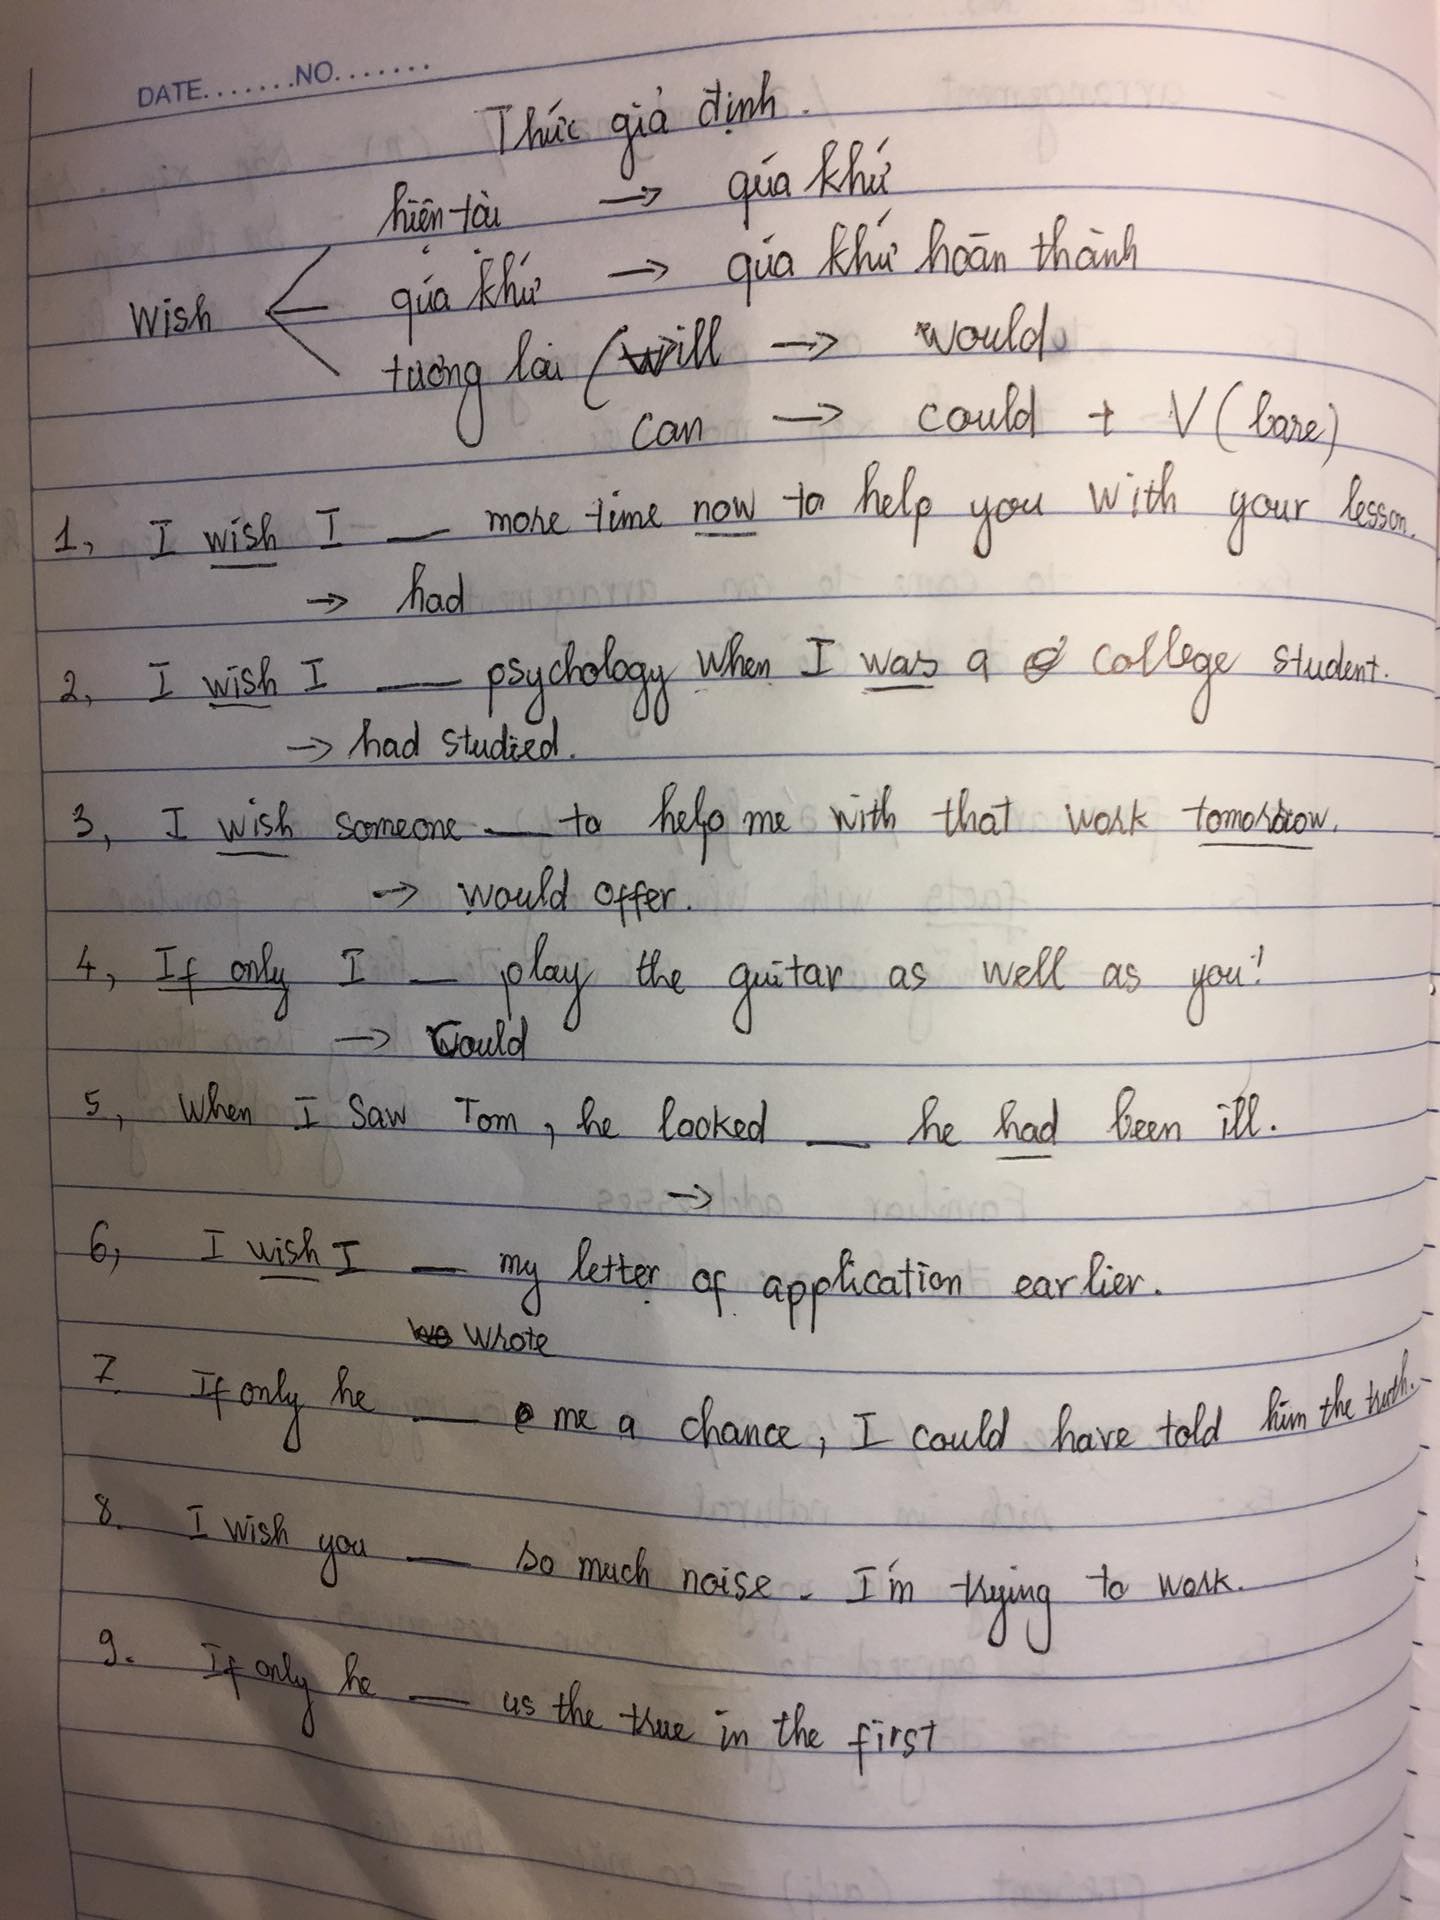 DATE.......NO.......
Thức giả định.
hiện tại → quá khứ
Wish quá khứ → quá khứ hoàn thành
tương lai (will → would
can → could + V (bare)
1, I wish I __ more time now to help you with your lesson.
→ had
2, I wish I __ psychology when I was a college student.
→ had studied.
3, I wish someone __ to help me with that work tomorrow.
→ would offer.
4, If only I __ play the guitar as well as you!
→ Could
5, When I saw Tom, he looked __ he had been ill.
→
6, I wish I __ my letter of application earlier.
wrote
7. If only he __ me a chance, I could have told him the truth.
8. I wish you __ so much noise. I'm trying to work.
9. If only he __ us the true in the first